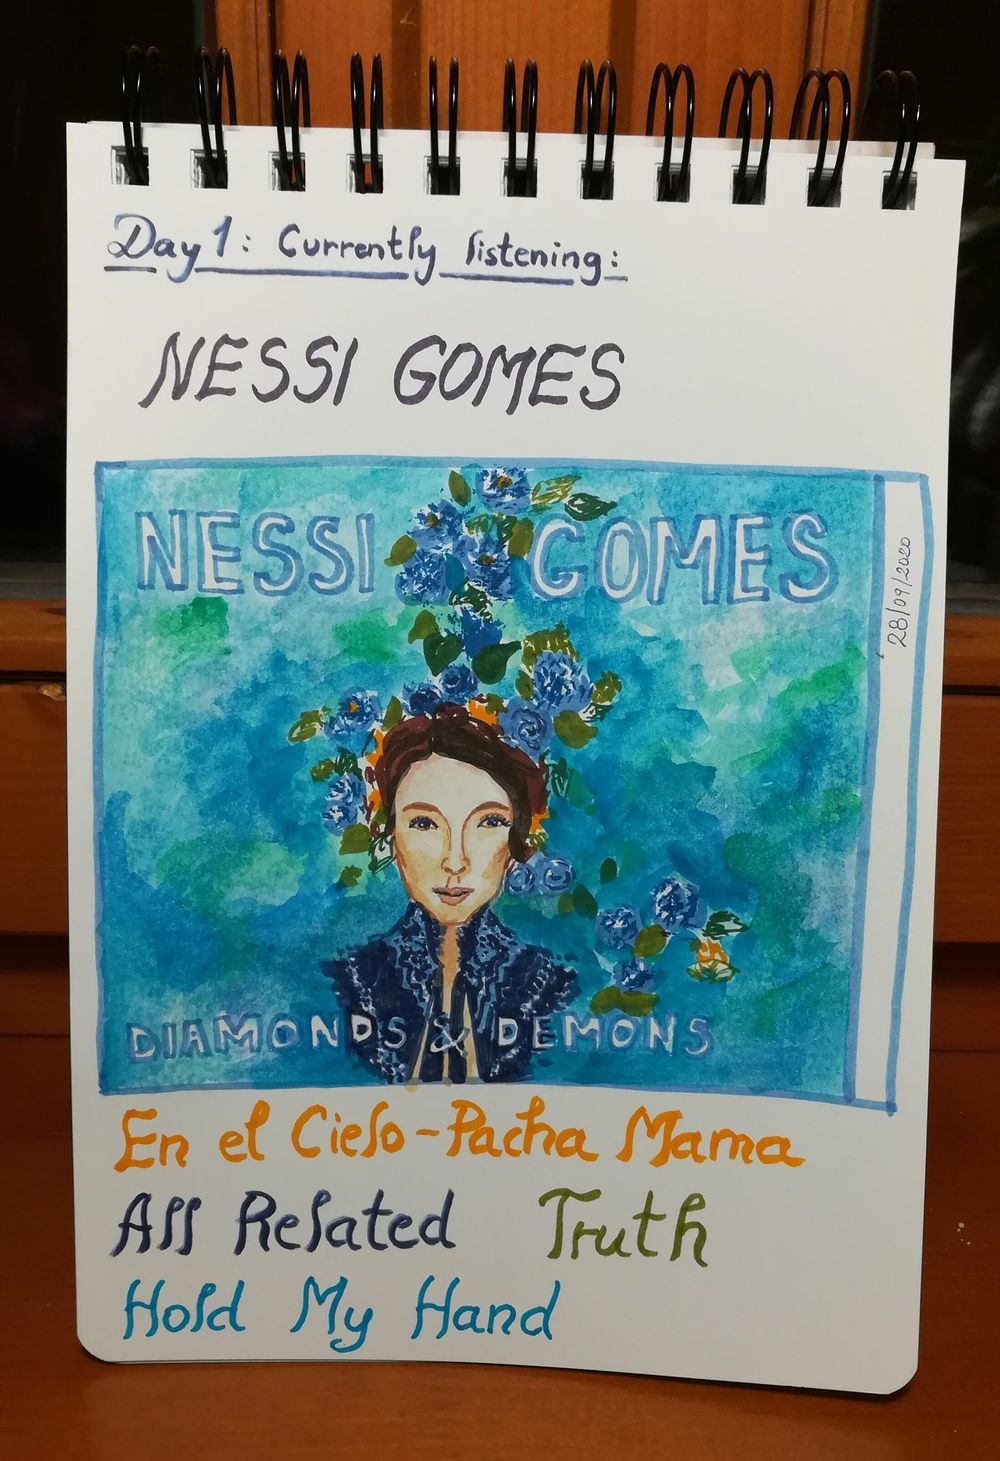 Day 1: Currently listening:
NESSI GOMES
NESSI GOMES
28/09/2020
DIAMONDS & DEMONS
En el Cielo - Pacha Mama
All Related Truth
Hold My Hand